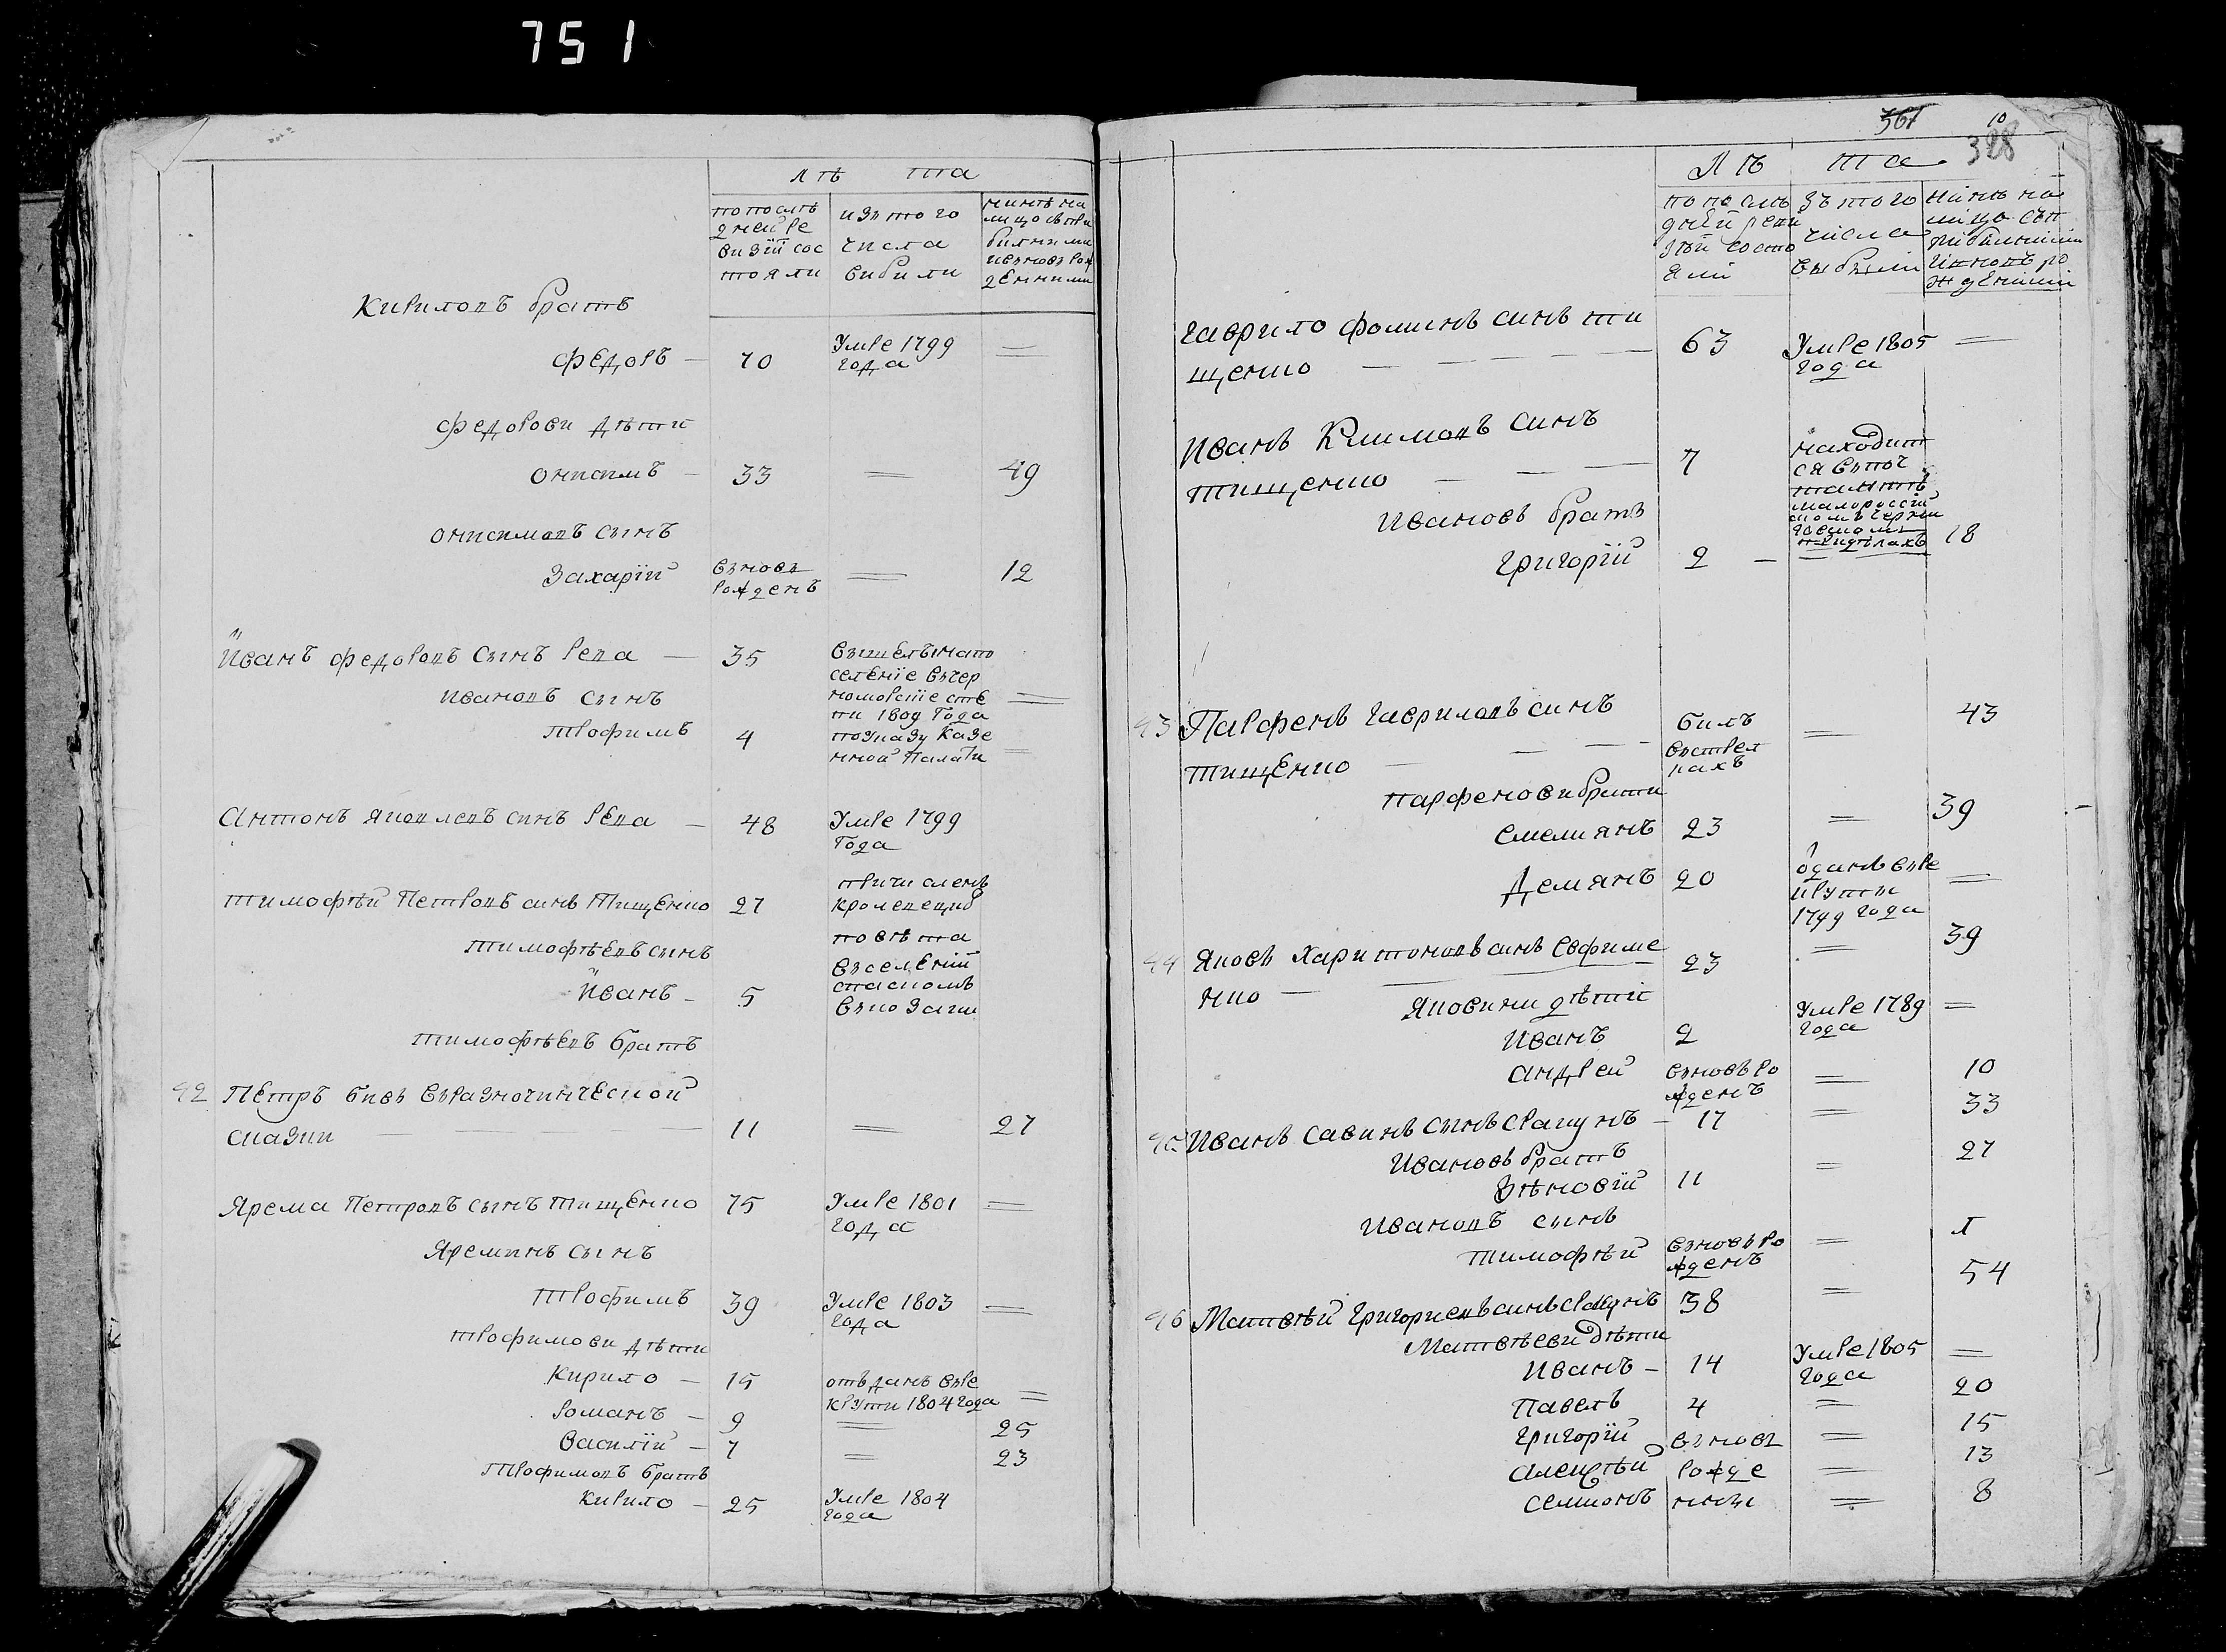 751
Лѣ та
попослѣ
дней ре
визіи сос
тояли
изъ того
числа
вибили
нинѣ на
лицо съ при
билими
ивновь рож
денними
Кириловъ братъ
Федоръ — 70 Умре 1799 года =
Федорови дѣти
Онисимъ — 33 = 49
Онисимовъ сынъ
Захарій вновь рожденъ = 12
Иванъ Федоровъ сынъ Репа — 35 вышелънапо
селеніе вчер
номорскіе сте
пи 1809 Года
поуказу Казе
нной Палати
Ивановъ сынъ =
Трофимъ 4 =
Антонъ Яковлевъ синъ Репа — 48 Умре 1799 Года
Тимофѣй Петровъ синъ Тищенко 27 причисленъ
Кролевецко
повѣта
вселеніи
спаскомъ
вкозаки
Тимофѣевъ сынъ
Иванъ — 5
Тимофѣевъ братъ
92 Петръ бивъ въразночинческой
сказки — 11 = 27
Ярема Петровъ сынъ Тищенко 75 Умре 1801 года =
Яреминъ сынъ
Трофимъ 39 Умре 1803 года =
Трофимови дѣти
Кирило — 15 отъданъ вре
круты 1804 года =
Романъ — 9 = 25
Василій — 7 = 23
Трофимовъ братъ
Кирило — 25 Умре 1804 года
361 10
328
Лѣ та.
попослѣ
дней реви
зіи состо
яли
зътого
числа
выбыли
нинѣ на
лицо съп
рибилими
ивновь ро
жденими
Гаврило Фоминъ синъ Ти
щенко — 63 Умре 1805 года =
Иванъ Климовъ синъ
Тищенко — 7 находит
ся впоч
талтѣ
малороссій
скомъ черни
говскомъ
Ивановъ братъ
Григорій 2 — = 18
93 Парфенъ Гавриловъ синъ
Тищенко — билъ
въстрел
кахъ = 43
парфенови брати
Емелиянъ 23 = 39
Демянъ 20 оданъ вре
круты
1799 года =
94 Яковъ Харитоновъ синъ Евфиме
нко — 23 = 39
Яковини дѣти
Иванъ 2 Умре 1789 года =
Андрей вновь ро
жденъ = 10
95 Иванъ Савинъ сынъ Скапунъ — 17 = 33
Ивановъ братъ
Зѣновій 11 = 27
Ивановъ сынъ
Тимофѣй вновь ро
жденъ =
96 Матвѣй Григориевъ синъ 38 = 54
Матвѣеви дѣти
Иванъ — 14 Умре 1805 года =
Павелъ 4 = 20
Григорій вновь = 15
Алексѣй рожде = 13
Семионъ нны = 8